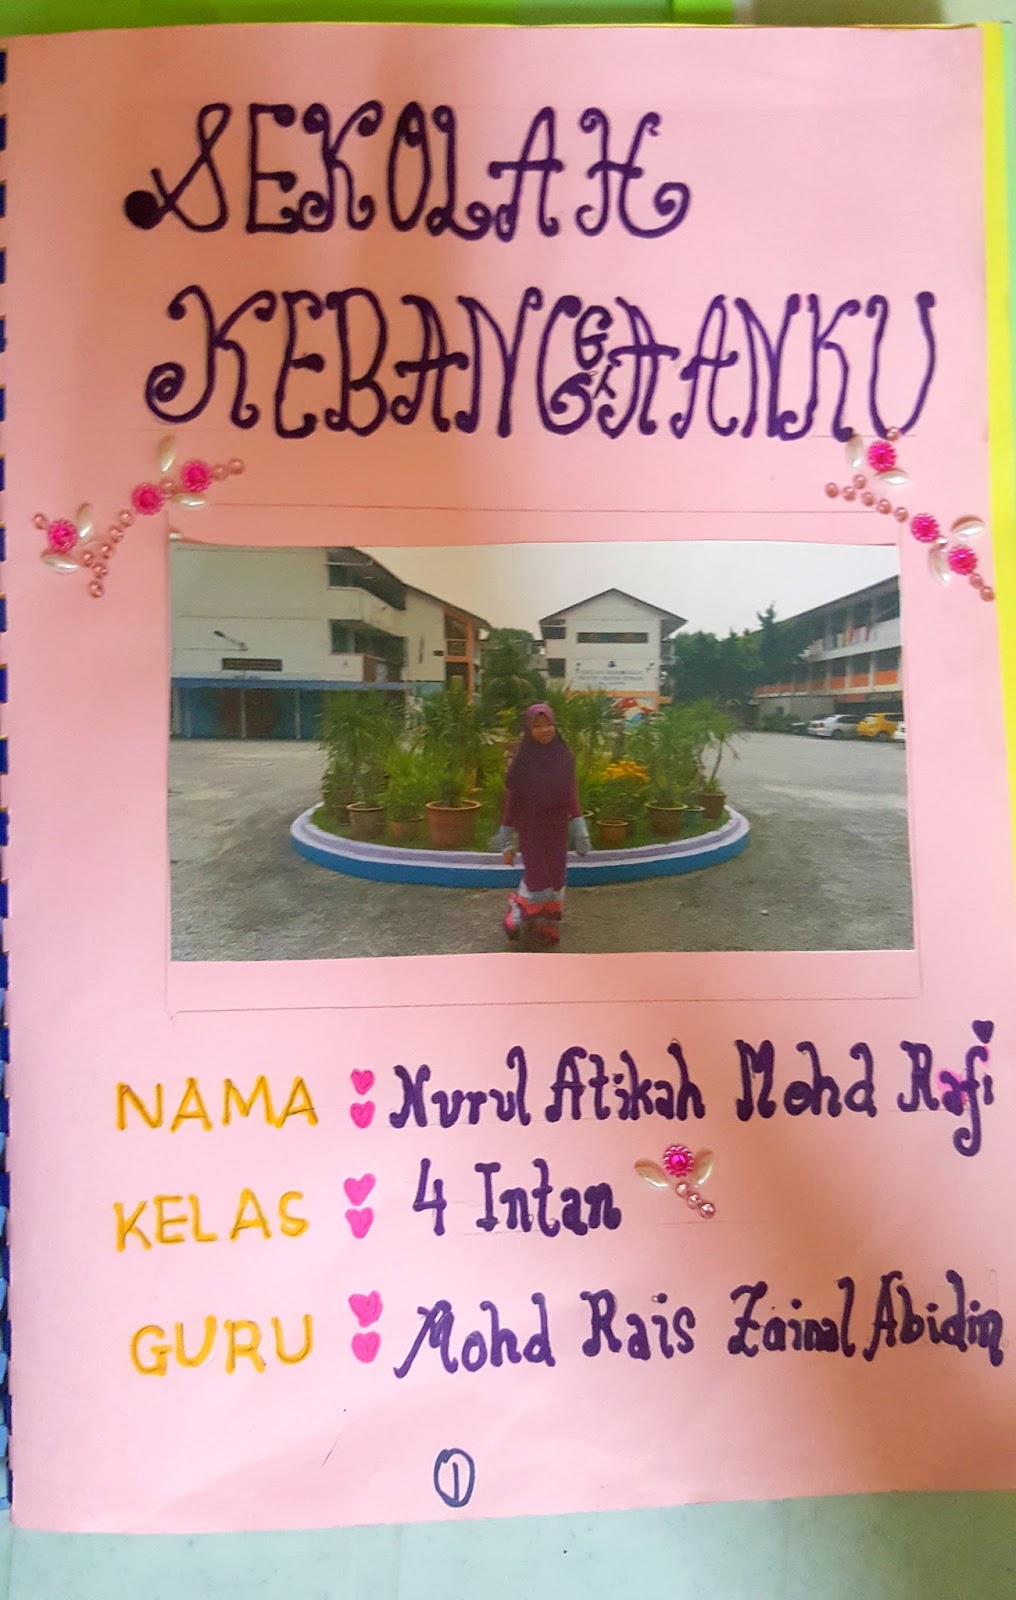 SEKOLAH
KEBANGGAANKU
NAMA : Nurul Atikah Mohd Rafi
KELAS : 4 Intan
GURU : Mohd Rais Zainal Abidin
1